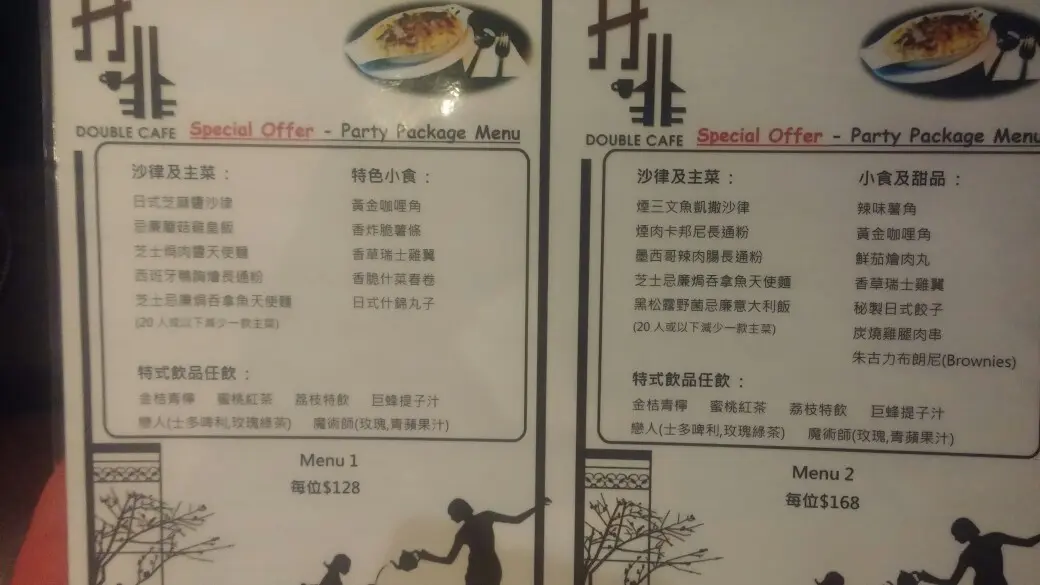 DOUBLE CAFE Special Offer - Party Package Menu
沙律及主菜：
日式芝麻醬沙律
忌廉蘑菇雞皇飯
芝士焗肉醬天使麵
西班牙鴨胸燴長通粉
芝士忌廉焗吞拿魚天使麵
(20 人或以下減少一款主菜)
特色小食：
黃金咖哩角
香炸脆薯條
香草瑞士雞翼
香脆什菜春卷
日式什錦丸子
特式飲品任飲：
金桔青檸 蜜桃紅茶 荔枝特飲 巨蜂提子汁
戀人(士多啤利,玫瑰綠茶) 魔術師(玫瑰,青蘋果汁)
Menu 1
每位$128
DOUBLE CAFE Special Offer - Party Package Menu
沙律及主菜：
煙三文魚凱撒沙律
煙肉卡邦尼長通粉
墨西哥辣肉腸長通粉
芝士忌廉焗吞拿魚天使麵
黑松露野菌忌廉意大利飯
(20 人或以下減少一款主菜)
小食及甜品：
辣味薯角
黃金咖哩角
鮮茄燴肉丸
香草瑞士雞翼
秘製日式餃子
炭燒雞腿肉串
朱古力布朗尼(Brownies)
特式飲品任飲：
金桔青檸 蜜桃紅茶 荔枝特飲 巨蜂提子汁
戀人(士多啤利,玫瑰綠茶) 魔術師(玫瑰,青蘋果汁)
Menu 2
每位$168